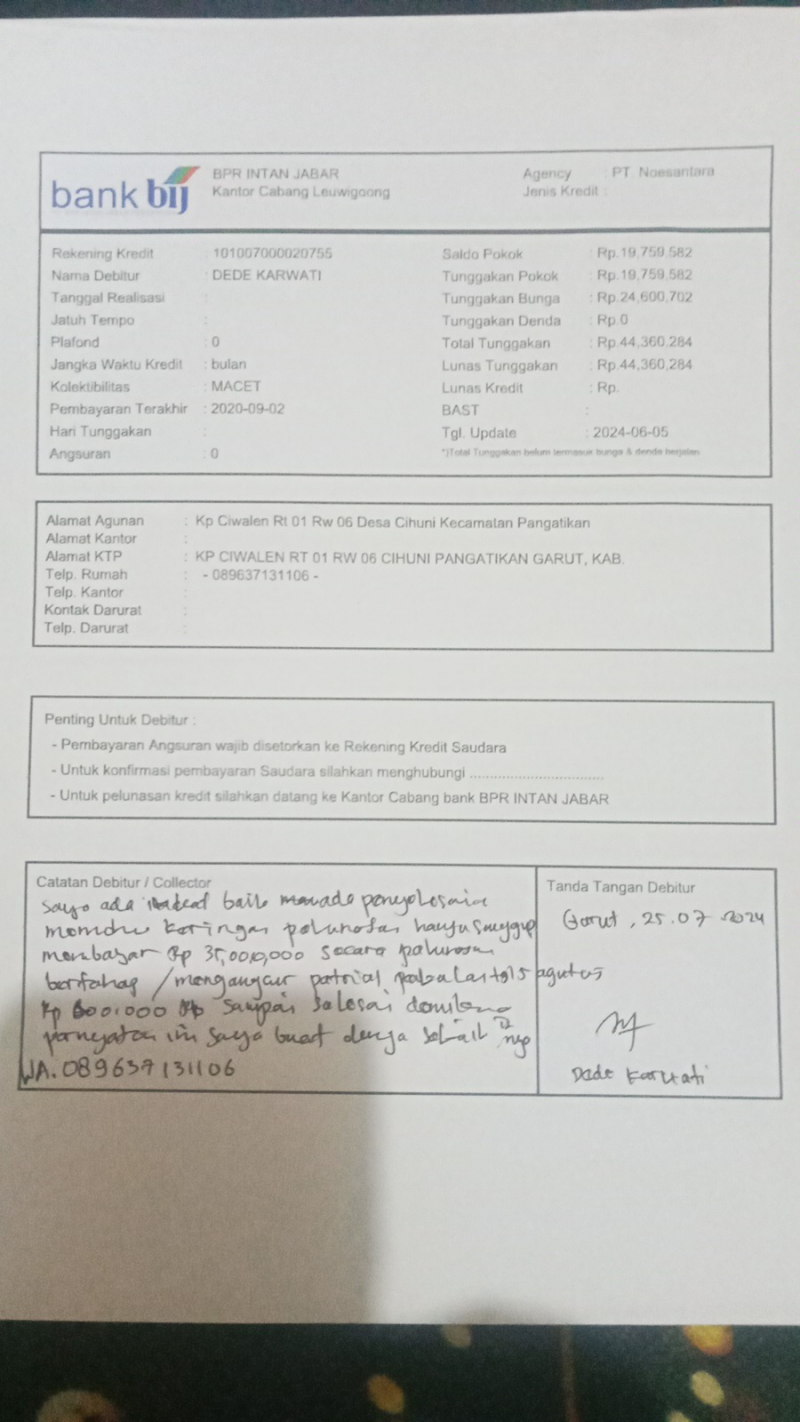 bank bij
BPR INTAN JABAR
Kantor Cabang Leuwigoong
Agency : PT. Noesantara
Jenis Kredit :
Rekening Kredit : 101007000020755
Nama Debitur : DEDE KARWATI
Tanggal Realisasi :
Jatuh Tempo :
Plafond : 0
Jangka Waktu Kredit : bulan
Kolektibilitas : MACET
Pembayaran Terakhir : 2020-09-02
Hari Tunggakan :
Angsuran : 0
Saldo Pokok : Rp.19,759,582
Tunggakan Pokok : Rp.19,759,582
Tunggakan Bunga : Rp.24,600,702
Tunggakan Denda : Rp.0
Total Tunggakan : Rp.44,360,284
Lunas Tunggakan : Rp.44,360,284
Lunas Kredit : Rp.
BAST :
Tgl. Update : 2024-06-05
*)Total Tunggakan belum termasuk bunga & denda berjalan
Alamat Agunan : Kp Ciwalen Rt 01 Rw 06 Desa Cihuni Kecamatan Pangatikan
Alamat Kantor :
Alamat KTP : KP CIWALEN RT 01 RW 06 CIHUNI PANGATIKAN GARUT, KAB.
Telp. Rumah : - 089637131106 -
Telp. Kantor :
Kontak Darurat :
Telp. Darurat :
Penting Untuk Debitur :
- Pembayaran Angsuran wajib disetorkan ke Rekening Kredit Saudara
- Untuk konfirmasi pembayaran Saudara silahkan menghubungi ................................
- Untuk pelunasan kredit silahkan datang ke Kantor Cabang bank BPR INTAN JABAR
Catatan Debitur / Collector
saya ada baik
keringan hanya sanggup
membayar Rp 35,000,000 secara
bertahap / agustus
Rp sampai selesai
ini saya buat
WA. 089637131106
Tanda Tangan Debitur
Garut, 25.07.2024
Dede Karwati